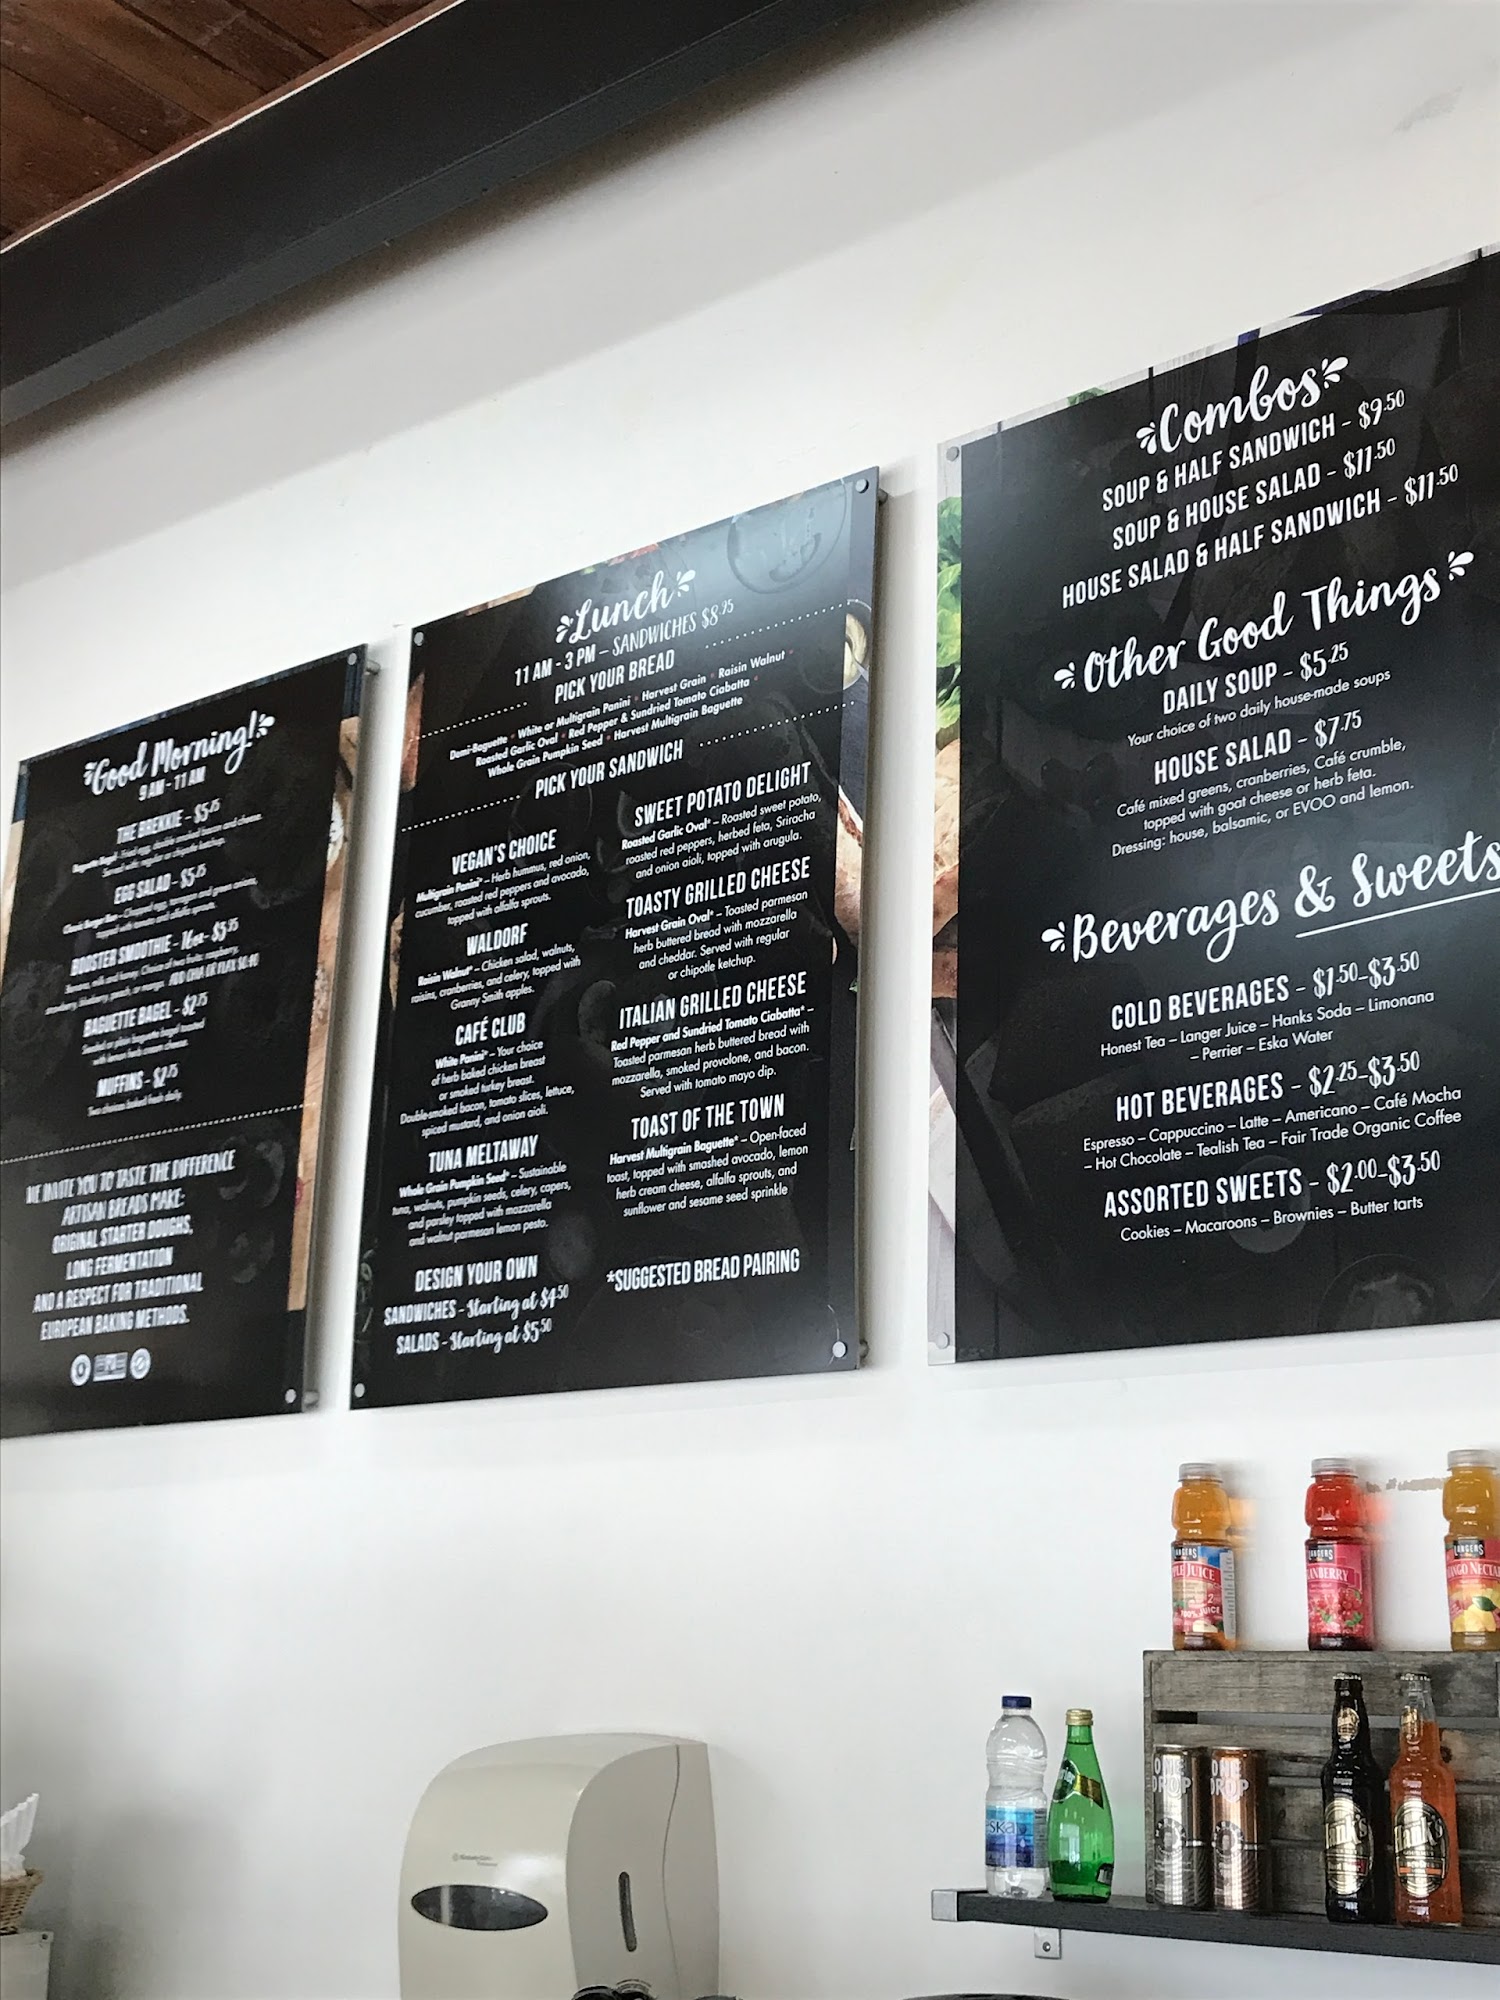 Good Morning!
9 AM - 11 AM
THE BREKKIE - $5.75
Baguette Bagel - Fried egg, double smoked bacon and cheese.
Served with regular or chipotle ketchup.
EGG SALAD - $5.75
topped with tomato and alfalfa sprouts.
BOOSTER SMOOTHIE - 16oz - $5.95
Banana, milk and honey. Choice of two fruits: raspberry,
strawberry, blueberry, peach, or mango.
BAGUETTE BAGEL - $2.75
Seeded or plain baguette bagel toasted
with lemon herb cream cheese.
MUFFINS - $2.75
Two choices baked fresh daily.
WE INVITE YOU TO TASTE THE DIFFERENCE
ARTISAN BREADS MAKE:
ORIGINAL STARTER DOUGHS,
LONG FERMENTATION
AND A RESPECT FOR TRADITIONAL
EUROPEAN BAKING METHODS.
Lunch
11 AM - 3 PM – SANDWICHES $8.95
PICK YOUR BREAD
Demi-Baguette * White or Multigrain Panini * Harvest Grain * Raisin Walnut *
Roasted Garlic Oval * Red Pepper & Sundried Tomato Ciabatta *
Whole Grain Pumpkin Seed * Harvest Multigrain Baguette
PICK YOUR SANDWICH
VEGAN'S CHOICE
Multigrain Panini* – Herb hummus, red onion,
cucumber, roasted red peppers and avocado,
topped with alfalfa sprouts.
WALDORF
Raisin Walnut* – Chicken salad, walnuts,
raisins, cranberries, and celery, topped with
Granny Smith apples.
CAFÉ CLUB
White Panini* – Your choice
of herb baked chicken breast
or smoked turkey breast.
Double-smoked bacon, tomato slices, lettuce,
spiced mustard, and onion aioli.
TUNA MELTAWAY
Whole Grain Pumpkin Seed* – Sustainable
tuna, walnuts, pumpkin seeds, celery, capers,
and parsley topped with mozzarella
and walnut parmesan lemon pesto.
DESIGN YOUR OWN
SANDWICHES - Starting at $4.50
SALADS - Starting at $5.50
SWEET POTATO DELIGHT
Roasted Garlic Oval* – Roasted sweet potato,
roasted red peppers, herbed feta, Sriracha
and onion aioli, topped with arugula.
TOASTY GRILLED CHEESE
Harvest Grain Oval* – Toasted parmesan
herb buttered bread with mozzarella
and cheddar. Served with regular
or chipotle ketchup.
ITALIAN GRILLED CHEESE
Red Pepper and Sundried Tomato Ciabatta* –
Toasted parmesan herb buttered bread with
mozzarella, smoked provolone, and bacon.
Served with tomato mayo dip.
TOAST OF THE TOWN
Harvest Multigrain Baguette* – Open-faced
toast, topped with smashed avocado, lemon
herb cream cheese, alfalfa sprouts, and
sunflower and sesame seed sprinkle
*SUGGESTED BREAD PAIRING
Combos
SOUP & HALF SANDWICH - $9.50
SOUP & HOUSE SALAD - $11.50
HOUSE SALAD & HALF SANDWICH - $11.50
Other Good Things
DAILY SOUP - $5.25
Your choice of two daily house-made soups
HOUSE SALAD - $7.75
Café mixed greens, cranberries, Café crumble,
topped with goat cheese or herb feta.
Dressing: house, balsamic, or EVOO and lemon.
Beverages & Sweets
COLD BEVERAGES - $1.50-$3.50
Honest Tea – Langer Juice – Hanks Soda – Limonana
– Perrier – Eska Water
HOT BEVERAGES - $2.25-$3.50
Espresso – Cappuccino – Latte – Americano – Café Mocha
– Hot Chocolate – Tealish Tea – Fair Trade Organic Coffee
ASSORTED SWEETS - $2.00-$3.50
Cookies – Macaroons – Brownies – Butter tarts
LANGERS
PLE JUICE
100% JUICE
LANGERS
ANBERRY
LANGERS
NGO NECTA
eska
Perrier
ONE
DROP
ONE
DROP
Hank's
Hank's